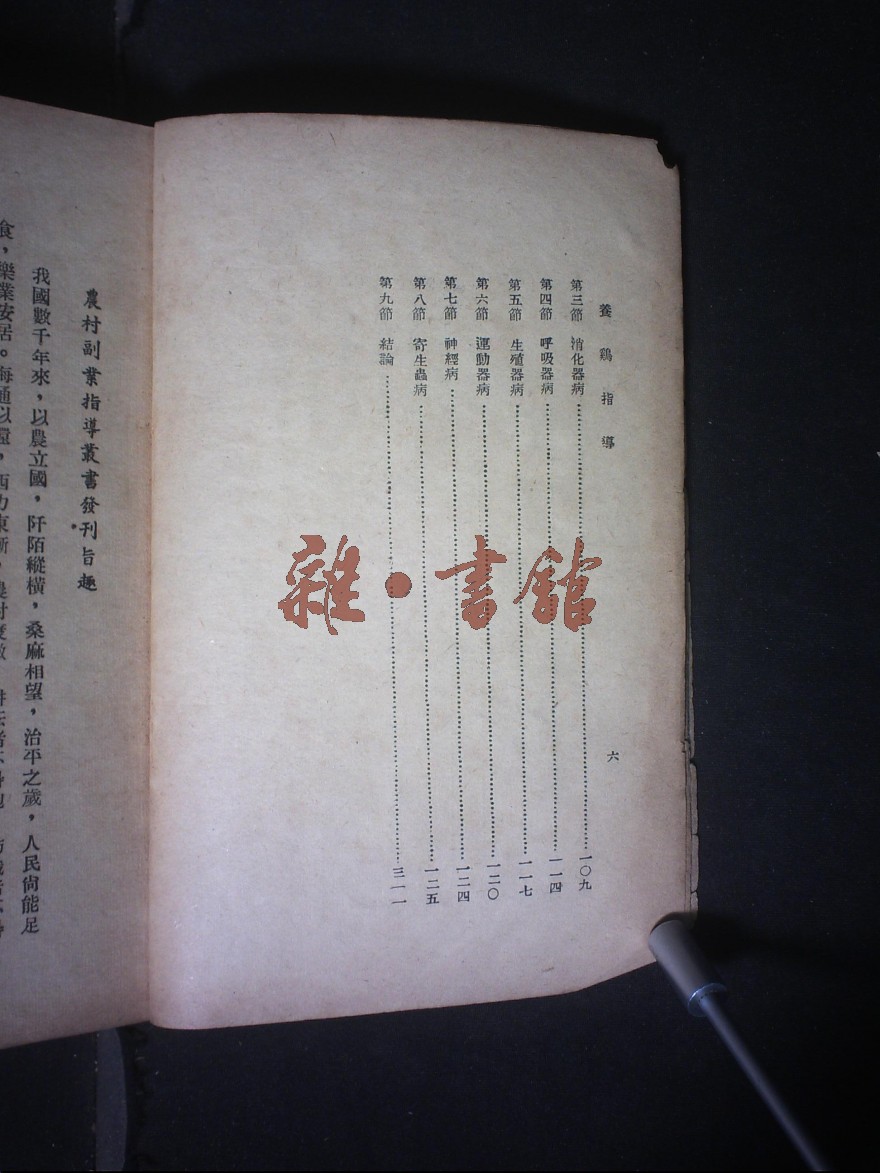 養鷄指導
六
第三節 消化器病 一〇九
第四節 呼吸器病 一一四
第五節 生殖器病 一一七
第六節 運動器病 一二〇
第七節 神經病 一二四
第八節 寄生蟲病 一二五
第九節 結論 三一一
雜·書館
農村副業指導叢書發刊旨趣
我國數千年來，以農立國，阡陌縱橫，桑麻相望，治平之歲，人民尙能足
食，樂業安居。海通以還，西力東漸，農村